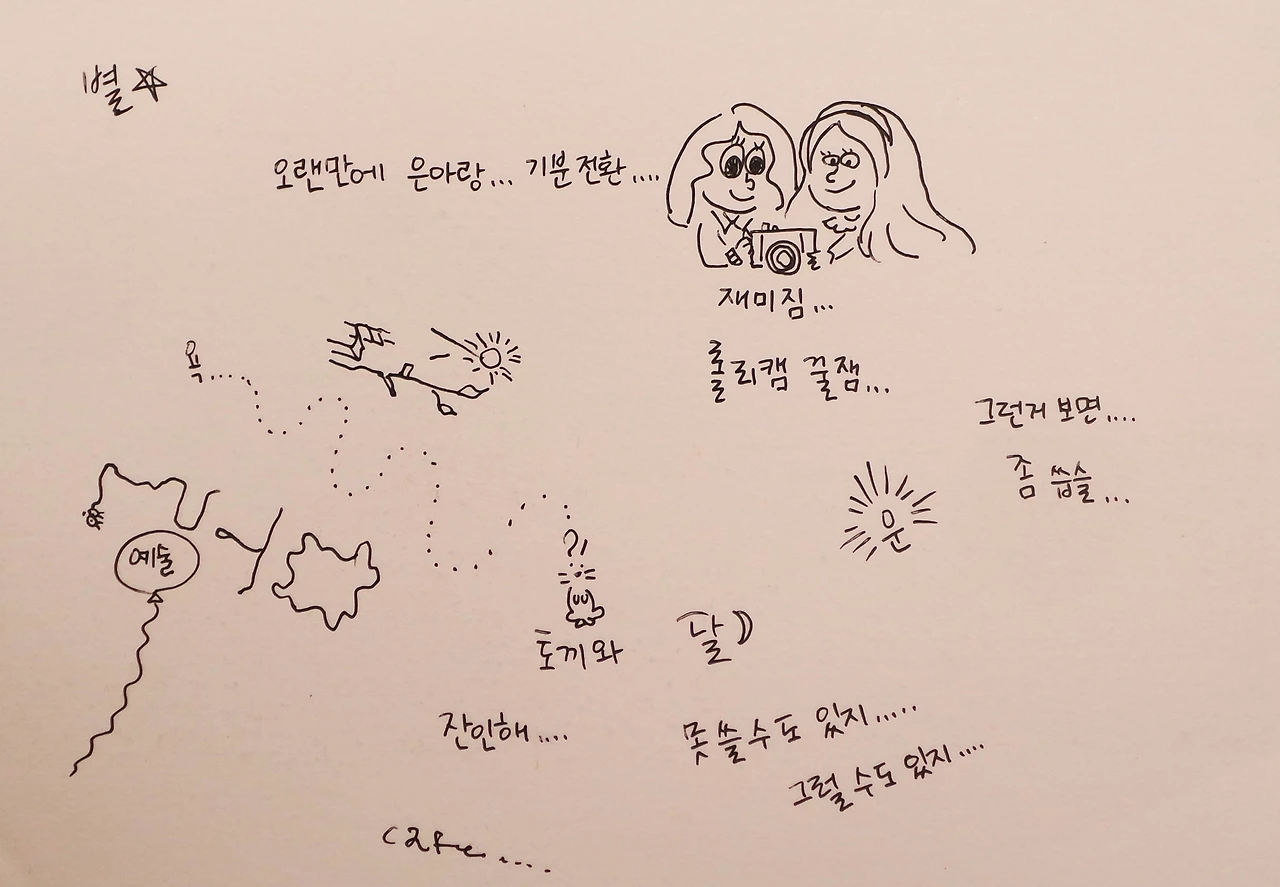 별
오랜만에 은아랑... 기분전환....
재미짐...
롤리캠 꿀잼...
욕....
그런거 보면....
좀 씁쓸...
운
예술
?!
토끼와
달
잔인해....
못 쓸 수도 있지.....
그럴 수도 있지....
cafe....